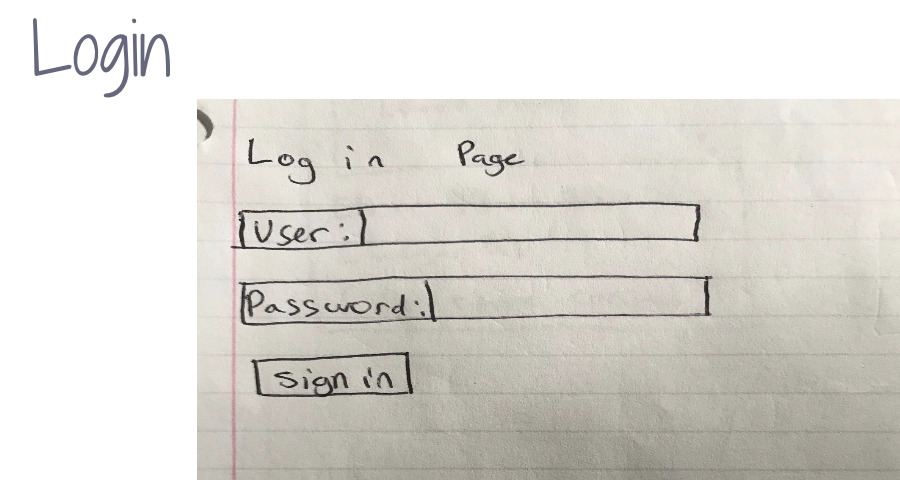 Login
Log in Page
User:
Password:
Sign in